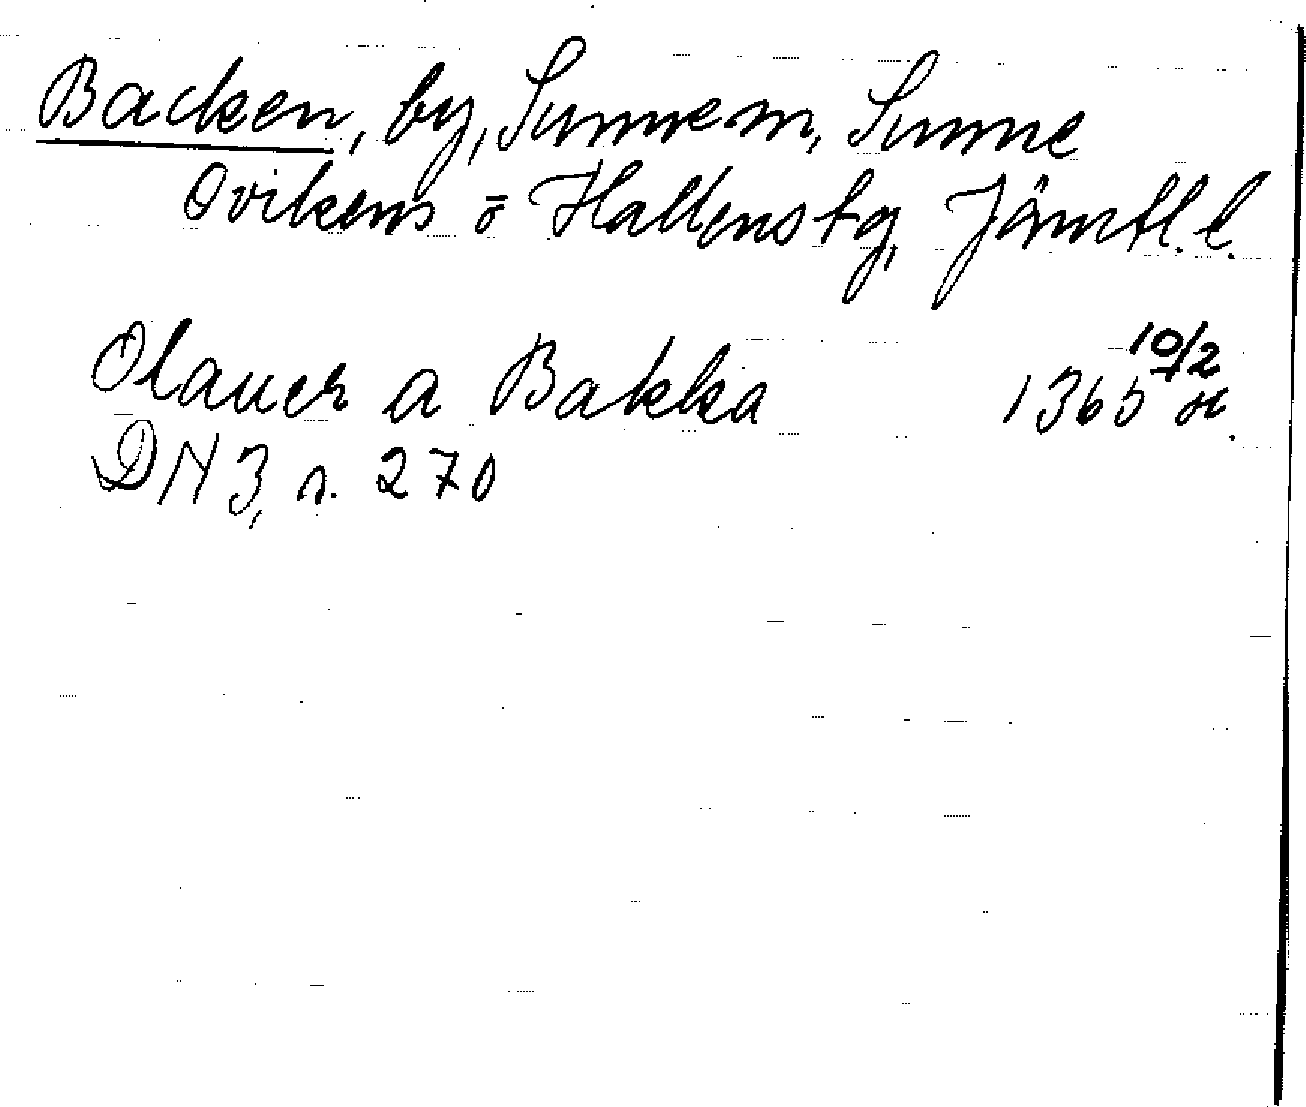 Backen, by, Sunne sn, Sunne
Ovikens o Hallens tg, Jämtl. l.
Olauer a Bakka 1365 10/2
DN 3, s. 270